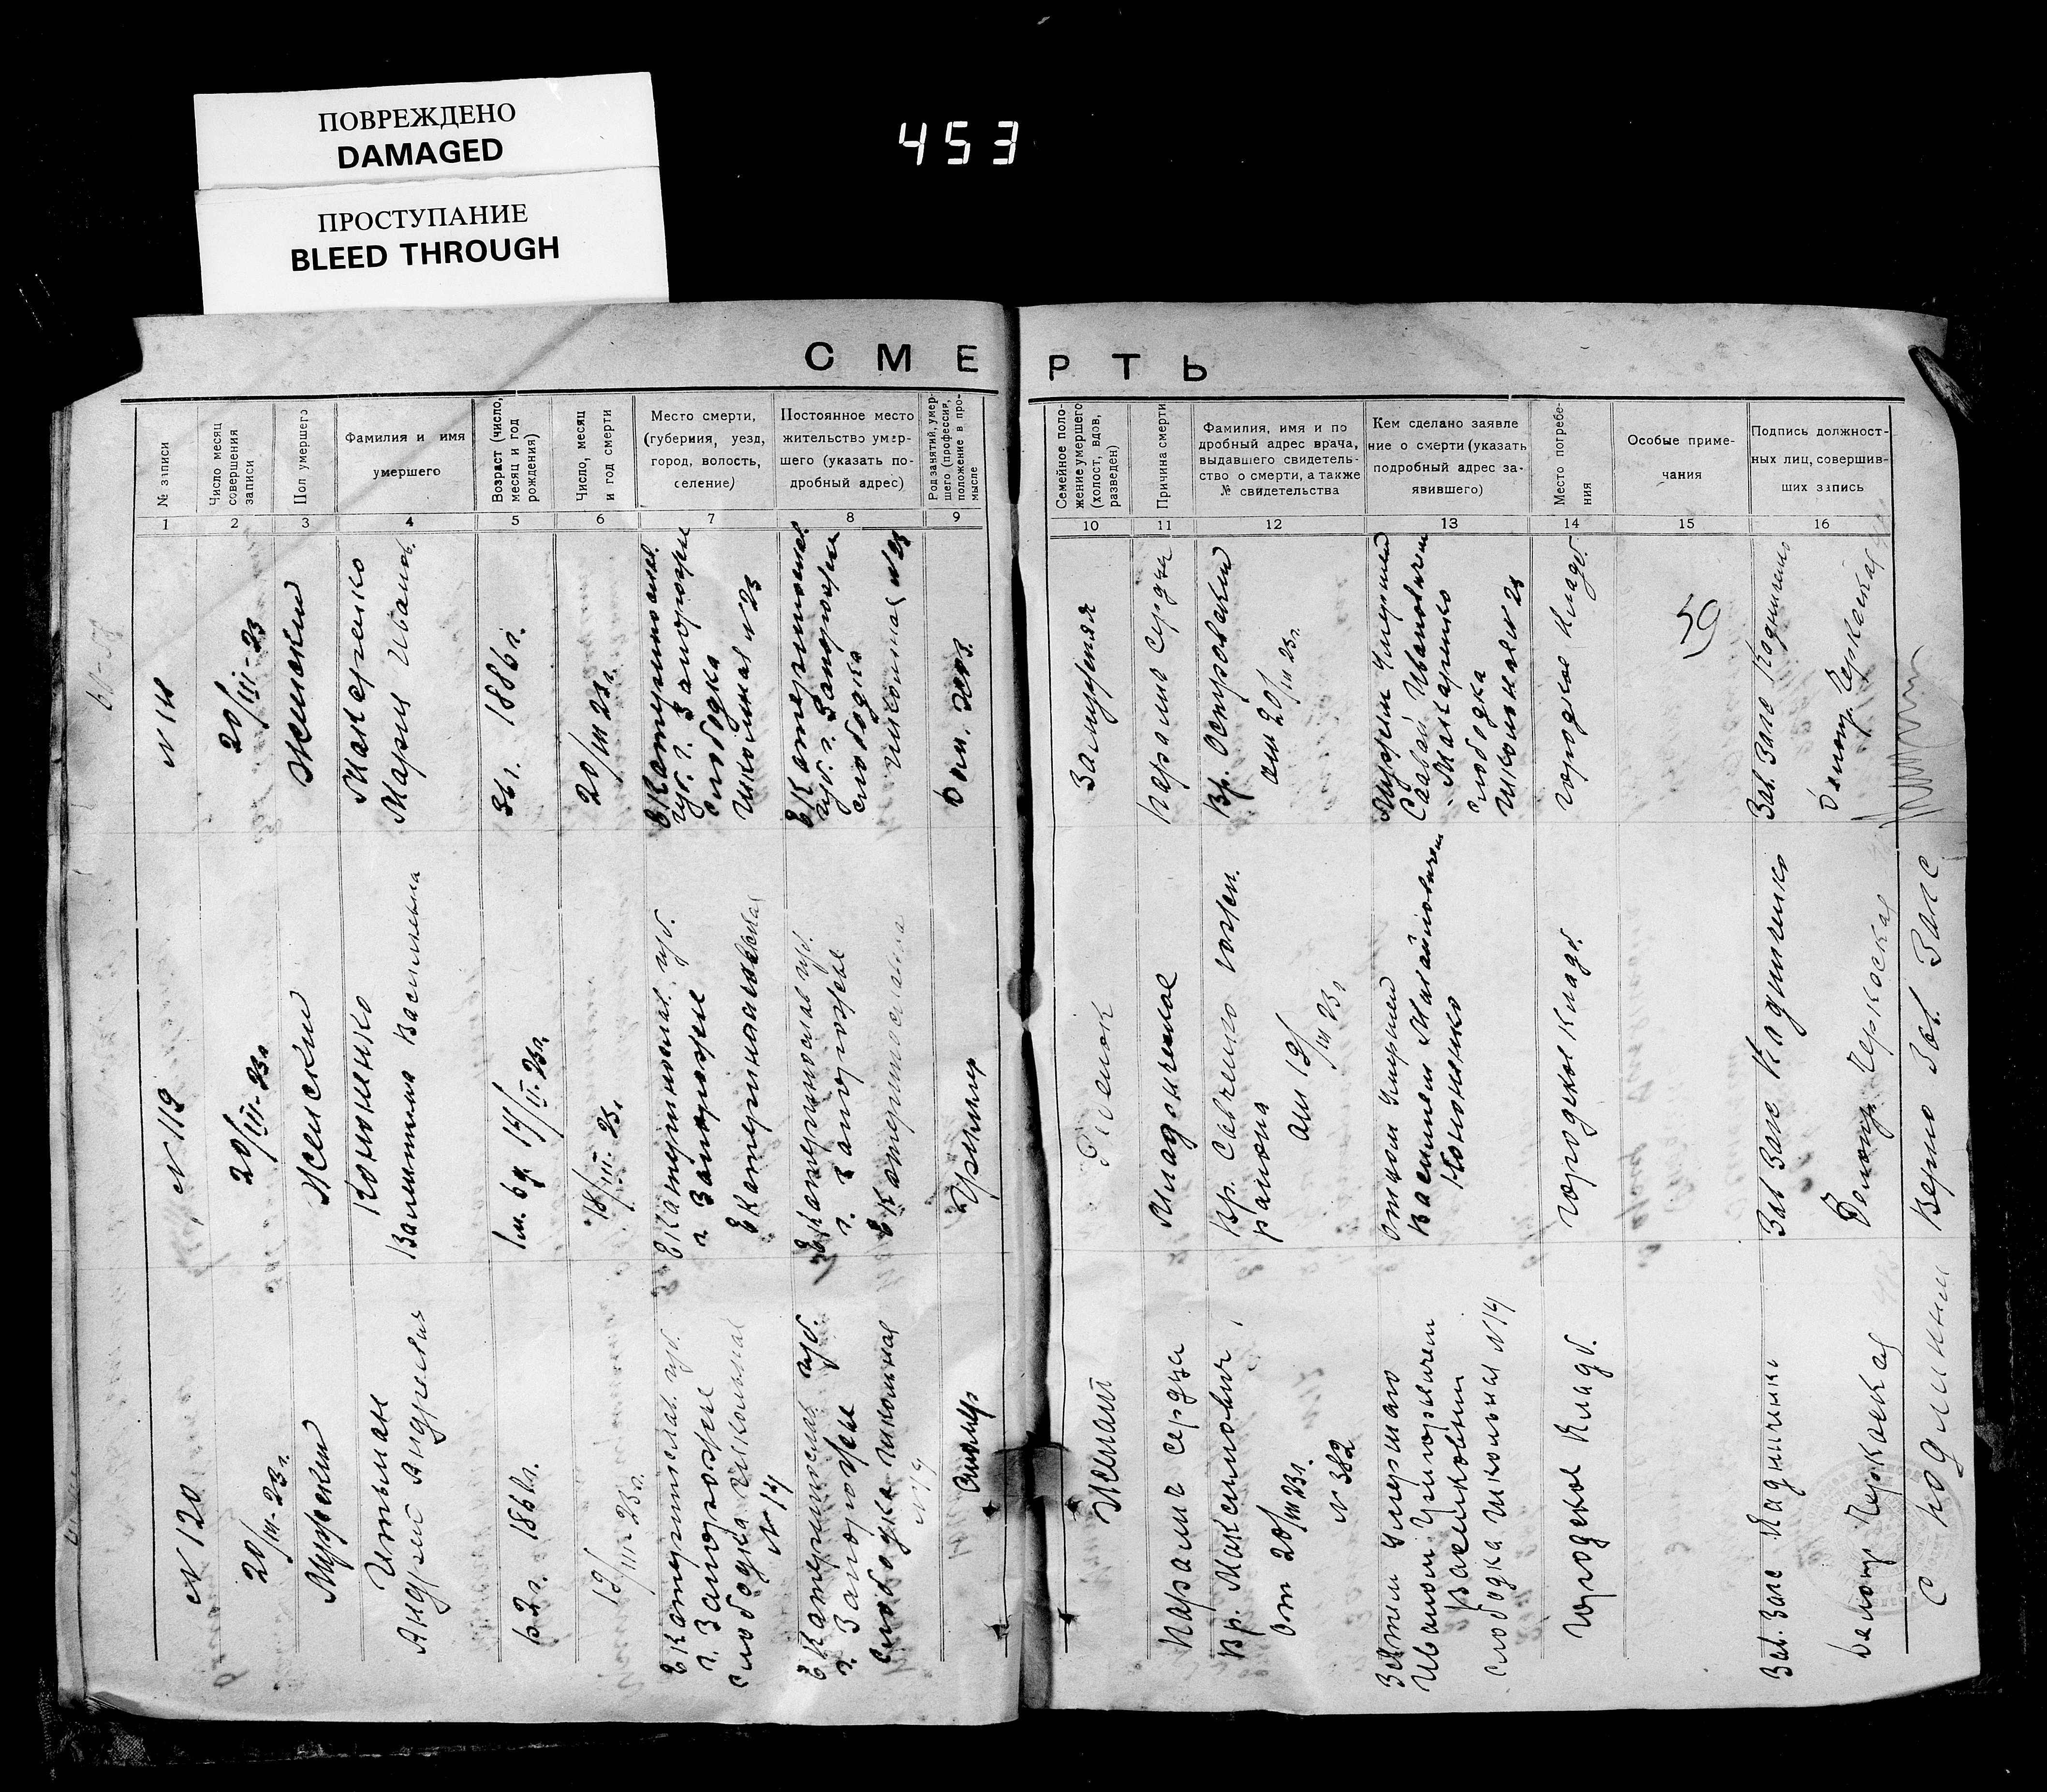 ПОВРЕЖДЕНО
DAMAGED
ПРОСТУПАНИЕ
BLEED THROUGH
453
СМЕРТЬ
№ записи
Число месяц
совершения
записи
Пол умершего
Фамилия и имя
умершего
Возраст (число,
месяц и год
рождения)
Число, месяц
и год смерти
Место смерти,
(губерния, уезд,
город, волость,
селение)
Постоянное место
жительство умер-
шего (указать по-
дробный адрес)
Род занятий, умер-
шего (профессия,
положение в про-
мысле
Семейное поло-
жение умершего
(холост, вдов,
разведен)
Причина смерти
Фамилия, имя и по
дробный адрес врача,
выдавшего свидетель-
ство о смерти, а также
№ свидетельства
Кем сделано заявле
ние о смерти (указать
подробный адрес за-
явившего)
Место погребе-
ния
Особые приме-
чания
Подпись должност-
ных лиц, совершив-
ших запись
1 2 3 4 5 6 7 8 9 10 11 12 13 14 15 16
20/III-23
Женский
Макаренко
Мария Иванов.
36 г. 1886 г.
20/III 23 г.
Екатеринослав.
губ. г. Запорожье
слободка
Школьная № 23
Екатеринослав.
губ. г. Запорожье
слободка
Школьная № 23
Дом. хоз.
Замужняя
Паралич сердца
Вр. Островский
от 20/III 23 г.
Мужем умершей
Савой Ивановичем
Макаренко
слободка
Школьная № 23
городское кладб.
59
Зав. Загс
Делопр. Черкаская
№ 119
20/III-23 г.
Женский
Кононенко
Валентина Васильевна
1 м. 6 д. 14/II-23 г.
18/III-23 г.
Екатеринослав. губ.
г. Запорожье
Екатеринославская
Екатеринослав губ.
г. Запорожье
Екатеринославская
Ребенок
Вр. Савченко
района
от 19/III 23 г.
Отцом умершей
Васильем
Кононенко
городское кладб.
Зав Загс
Делопр Черкаская
№ 120
20/III-23 г.
Мужской
Андрей Андреевич
62 г. 1861 г.
19/III-23 г.
Екатеринослав. губ.
г. Запорожье
слободка Школьная
№ 14
Екатеринослав губ.
г. Запорожье
слободка Школьная
Столяр
Женат
Паралич сердца
Вр. Максимович
от 20/III 23 г.
№ 382
Зятем умершего
Иваном Григорьевичем
слободка Школьная № 14
городское кладб.
Зав. Загс
Делопр Черкаская
С подлинным верно Зав. Загс